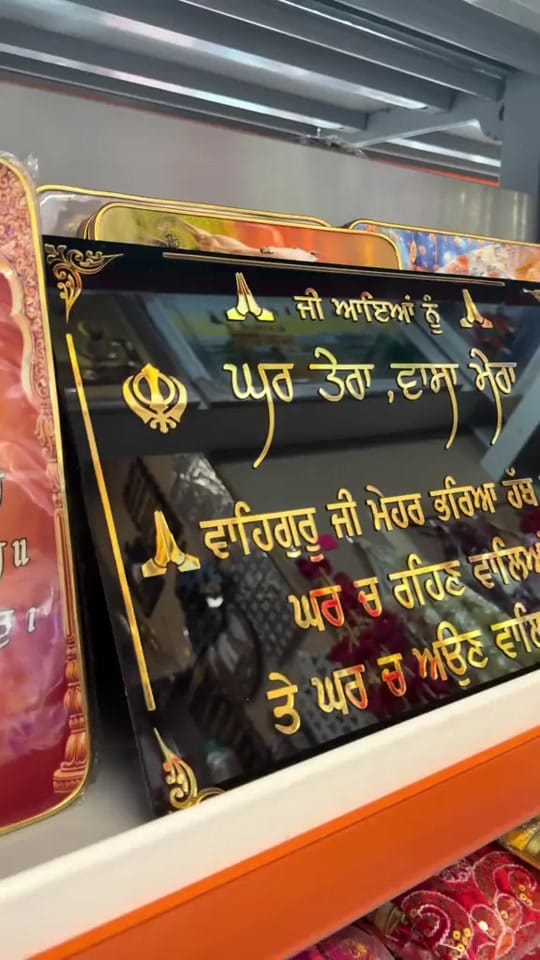 ਜੀ ਆਇਆਂ ਨੂੰ
ਘਰ ਤੇਰਾ ,ਵਾਸਾ ਮੇਰਾ
ਵਾਹਿਗੁਰੂ ਜੀ ਮੇਹਰ ਭਰਿਆ ਹੱਥ
ਘਰ ਚ ਰਹਿਣ ਵਾਲਿਆਂ
ਤੇ ਘਰ ਚ ਅਉਣ